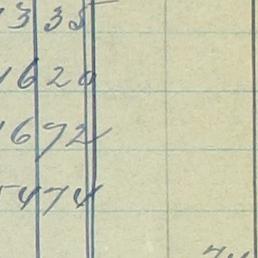 1335
1620
1692
5474
74